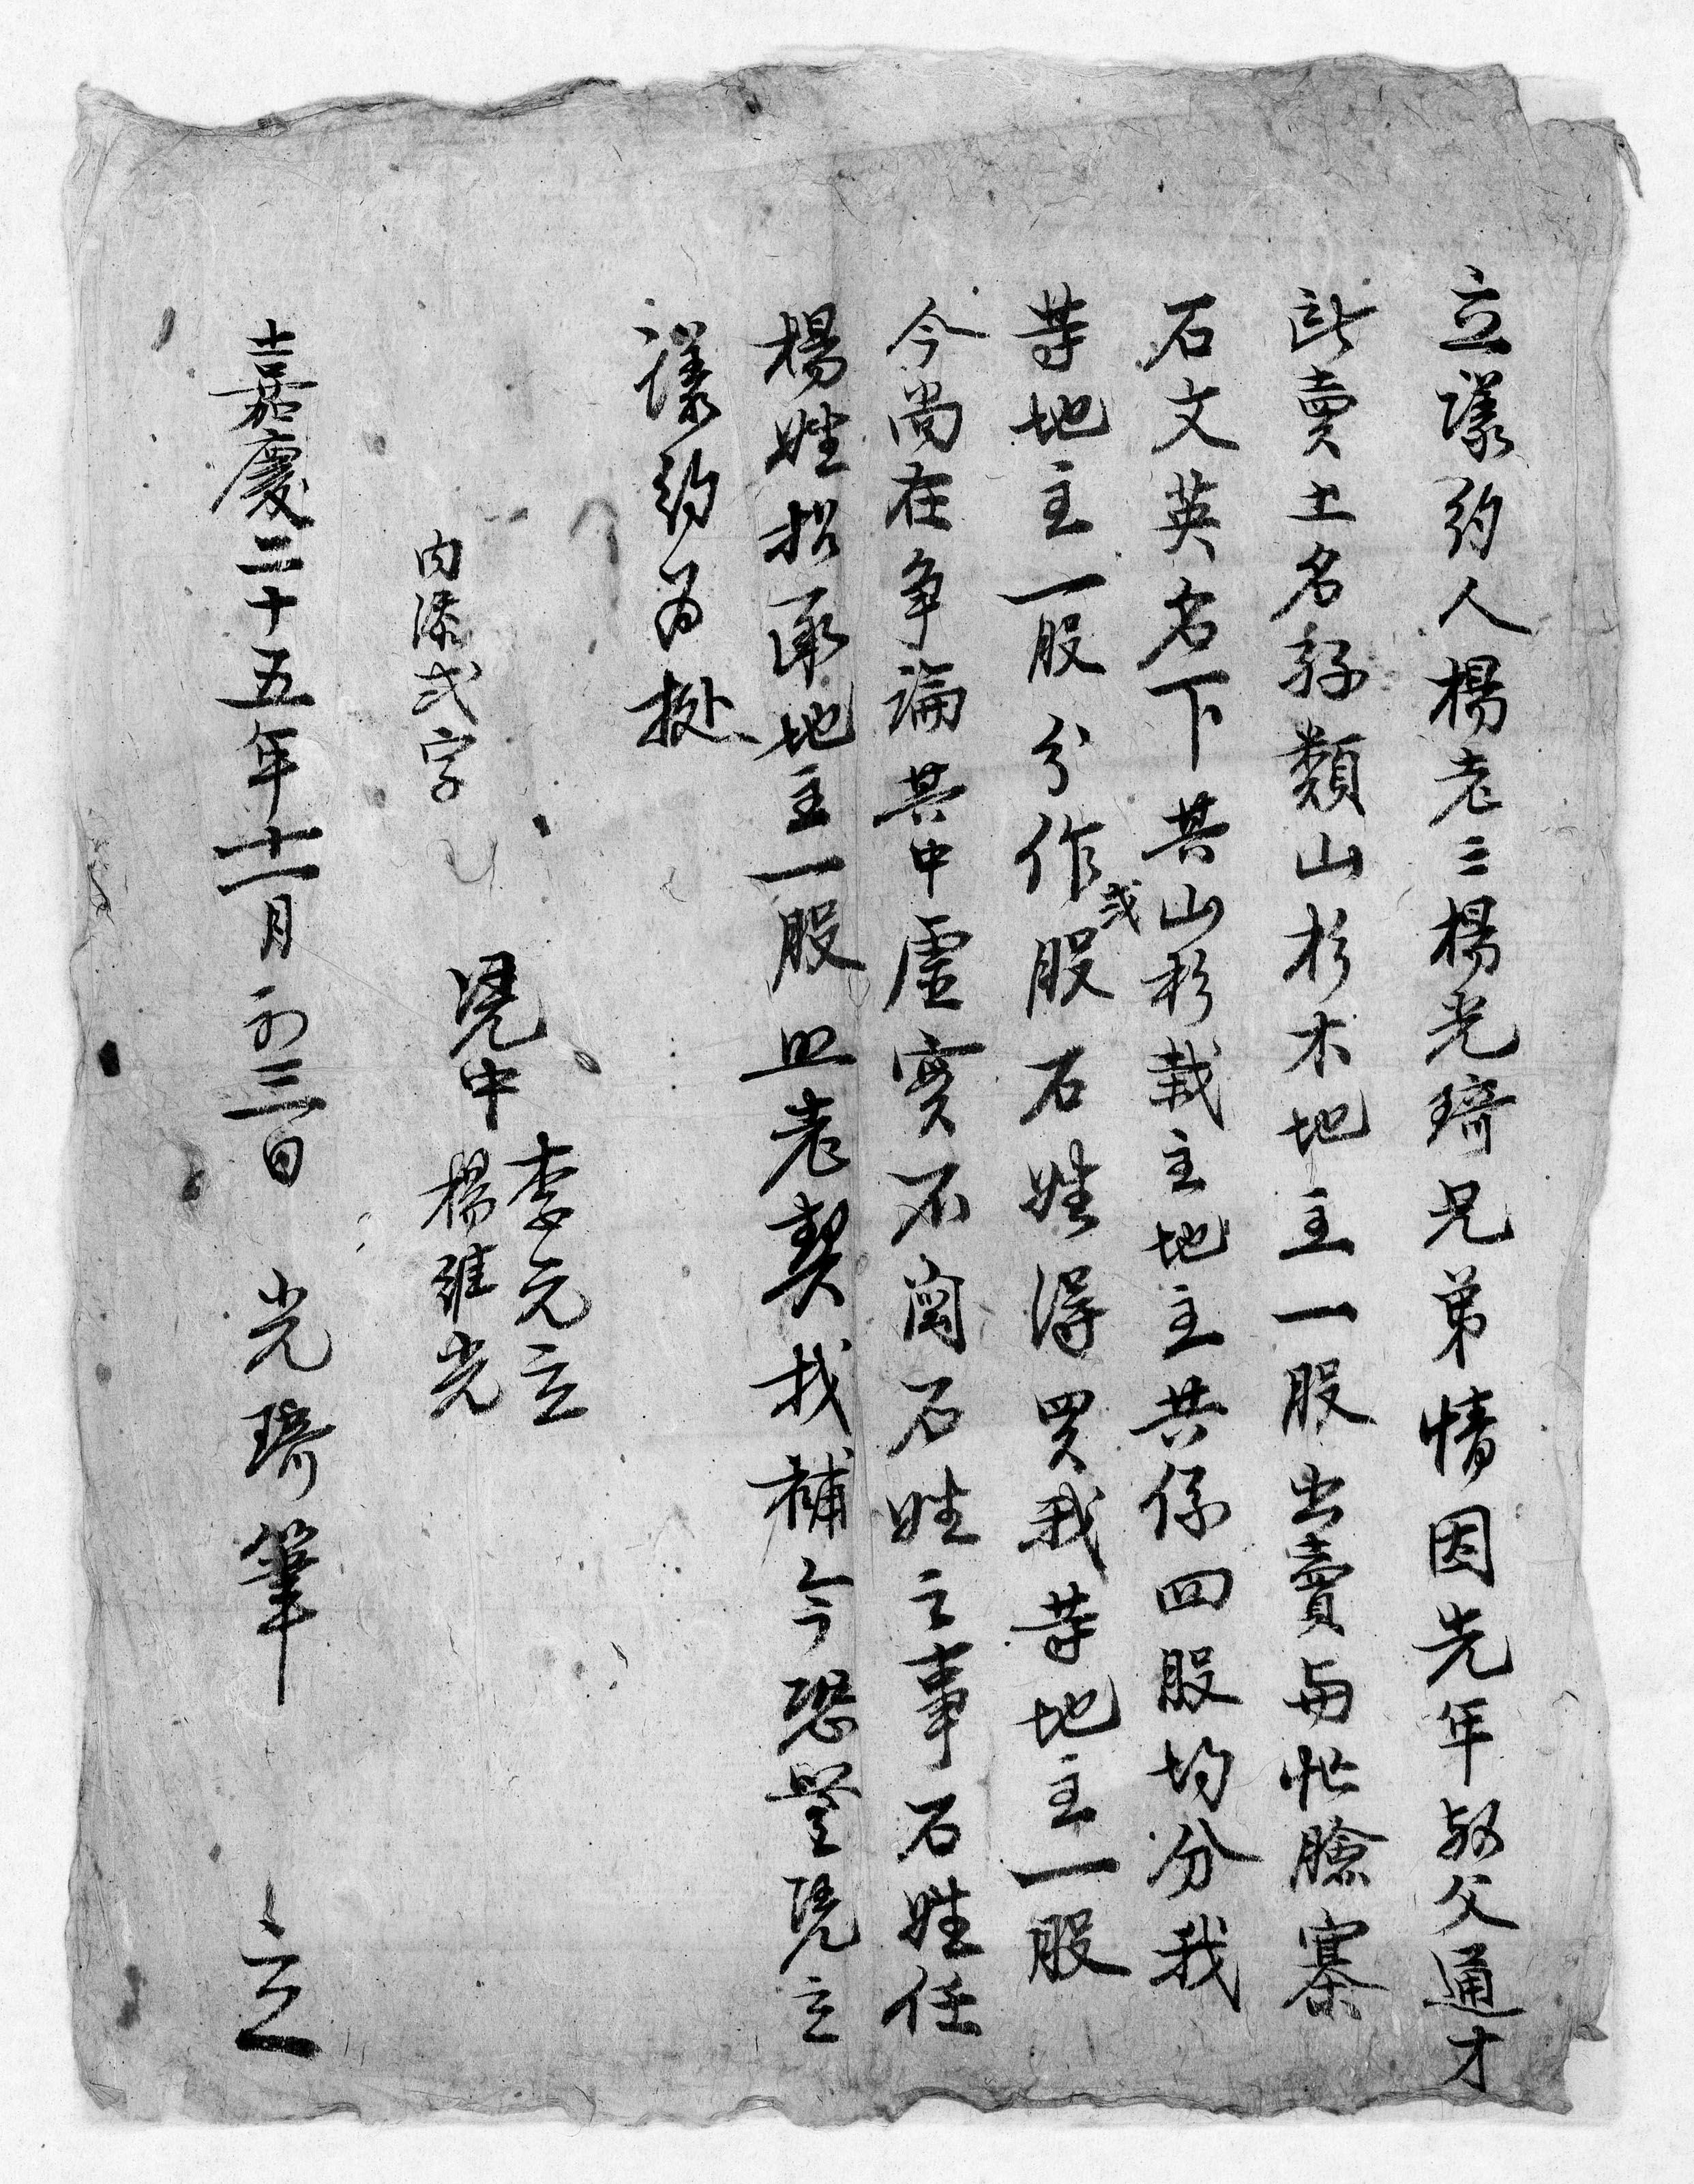 立議約人楊老三楊光琦兄弟情因先年叔父通才
所賣土名豸類山杉木地主一股出賣與怾臉寨
石文英名下其山杉栽主地主共係四股均分我
等地主一股分作貳股石姓得買我等地主一股
今尚在爭論其中虛實不關石姓之事石姓任
楊姓招承地主一股照老契找補今恐無憑立
議約為據
內添貳字
憑中 李元立
楊維光
嘉慶二十五年十一月初三日 光琦筆 立